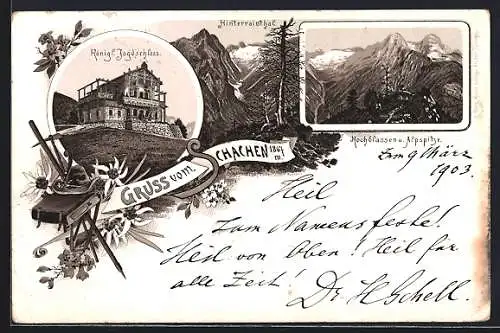 Hinterrainthal.
Königl. Jagdschloss.
Hochblassen u. Alpspitze.
GRUSS vom SCHACHEN 1867 m
9 März
1903.
Heil
zum Namensfeste!
Heil von Oben! Heil für
alle Zeit!
Dr. H Schell.